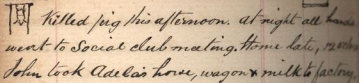 Killed pig this afternoon. At night all hands
went to Social club meeting. Home late, 12 oclock
John took Adelia's horse, wagon & milk to factory